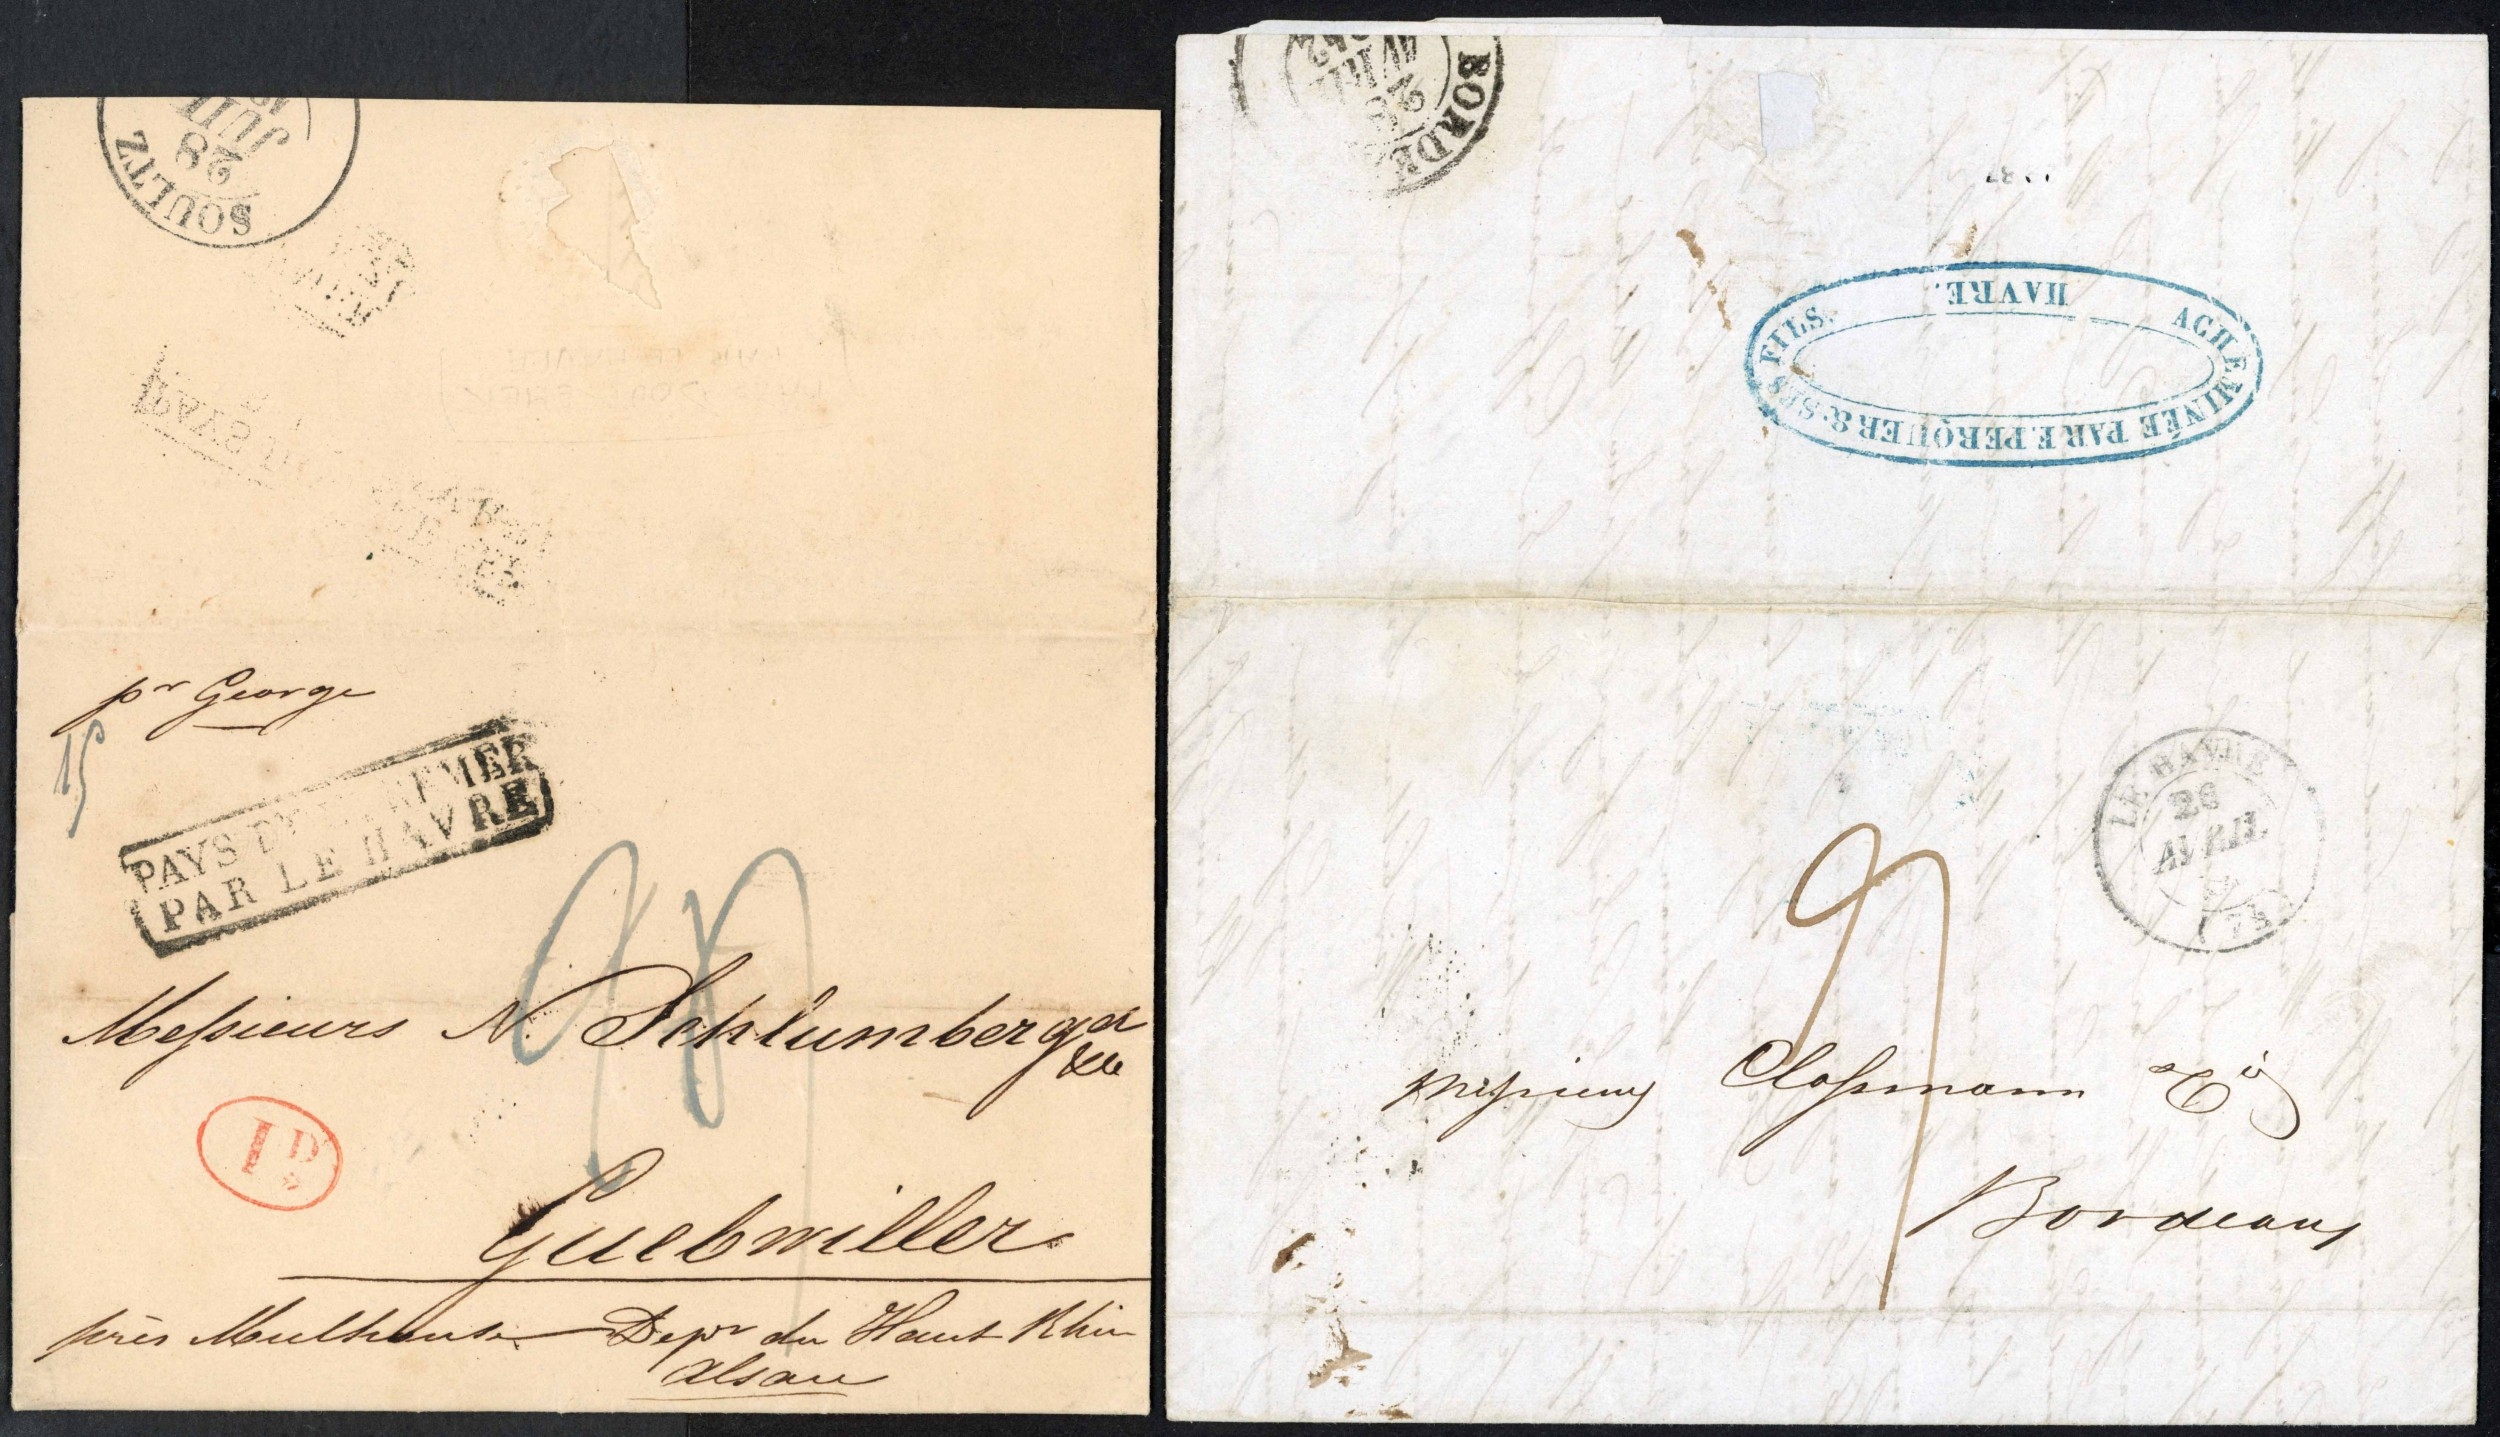 SOULTZ
28
JUIL
PAYS D
pr George
15
PAYS D'OUTREMER
PAR LE HAVRE
Messieurs N. Schlumberger
&Ce
1 D
Guebwiller
près Mulhouse Depr du Haut Rhin
Alsace
BORDE
AVRIL
HAVRE.
ACHEMINÉE PAR E. PERQUER & SES FILS.
LE HAVRE
28
AVRIL
(73)
9
Messieurs Clossmann & Cie
Bordeaux